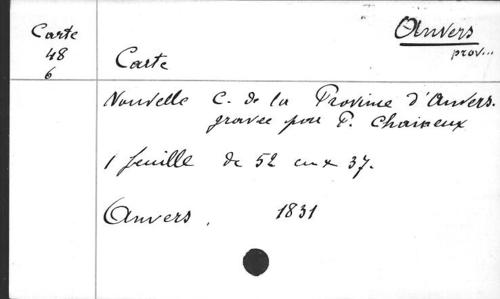 Carte
48
6
Anvers
prov...
Carte
Nouvelle C. de la Province d'Anvers.
gravée par P. Chaineux
1 feuille de 52 cm x 37.
Anvers. 1831